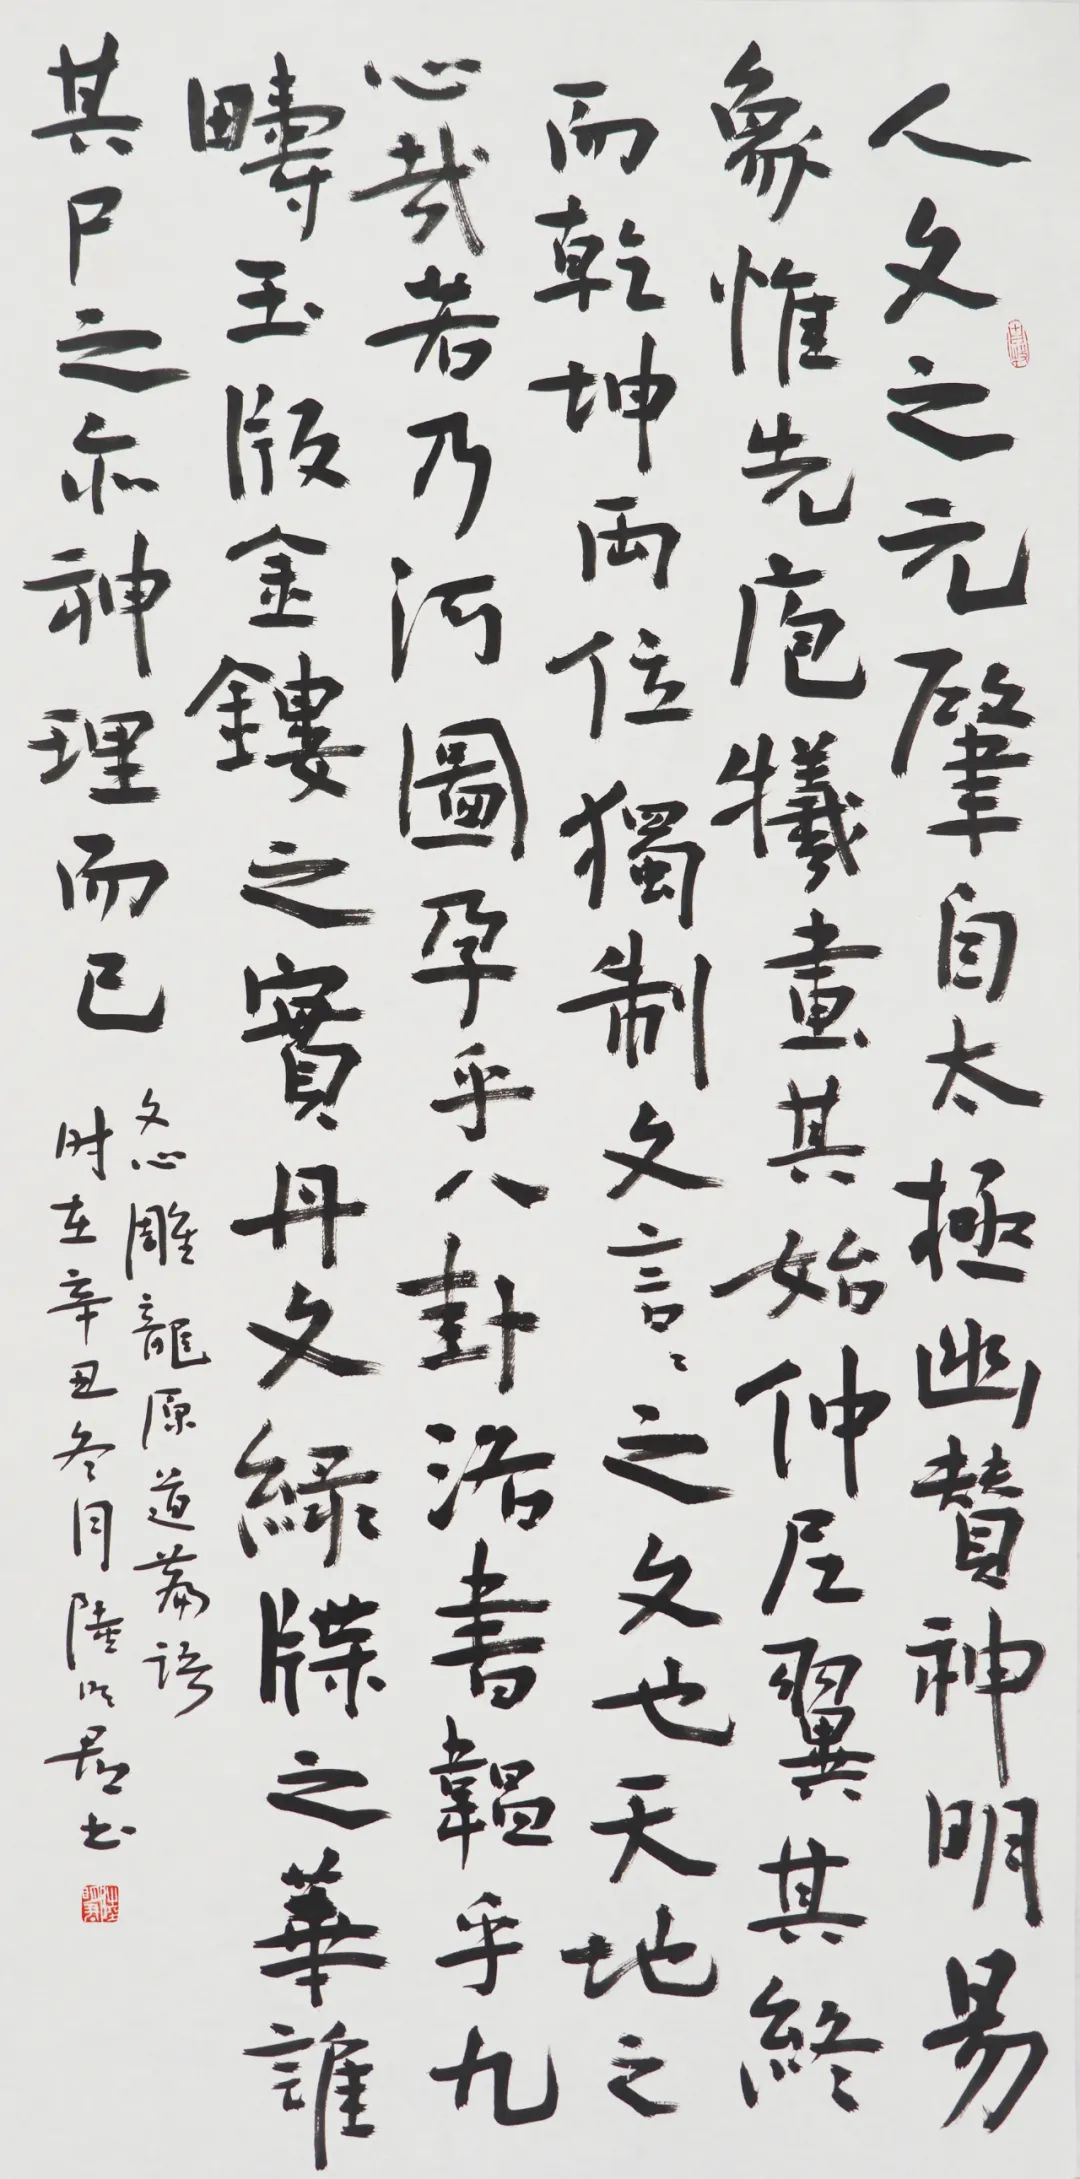 人文之元肇自太極幽贊神明易
象惟先庖犧畫其始仲尼翼其終
而乾坤兩位獨制文言言之文也天地之
心哉若乃河圖孕乎八卦洛書韞乎九
疇玉版金鏤之實丹文綠牒之華誰
其尸之亦神理而已
文心雕龍原道篇語
时在辛丑冬月陸明君书
陸明君